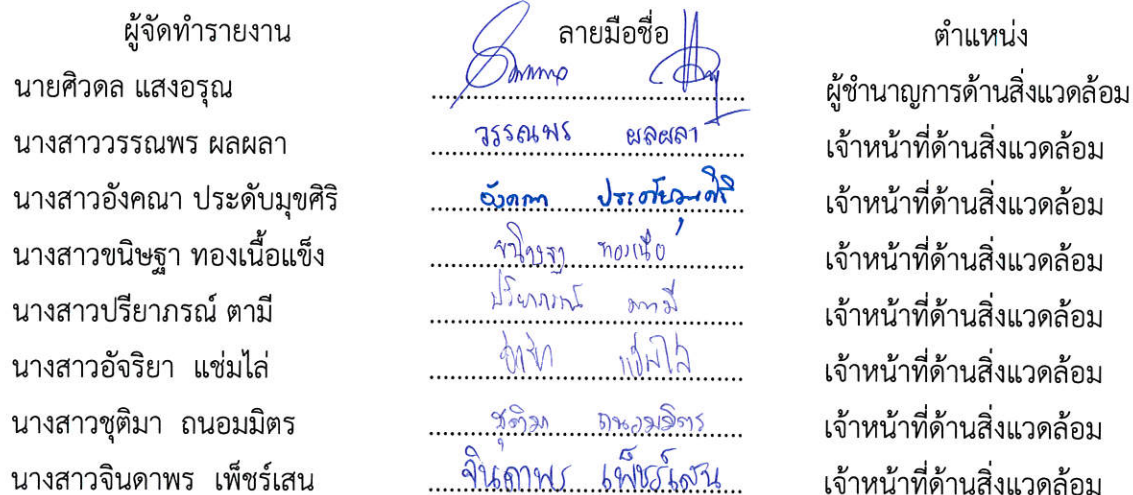 ผู้จัดทำรายงาน ลายมือชื่อ ตำแหน่ง
นายศิวดล แสงอรุณ ผู้ชำนาญการด้านสิ่งแวดล้อม
นางสาววรรณพร ผลผลา วรรณพร ผลผลา เจ้าหน้าที่ด้านสิ่งแวดล้อม
นางสาวอังคณา ประดับมุขศิริ อังคณา ประดับมุขศิริ เจ้าหน้าที่ด้านสิ่งแวดล้อม
นางสาวขนิษฐา ทองเนื้อแข็ง ขนิษฐา ทองเนื้อ เจ้าหน้าที่ด้านสิ่งแวดล้อม
นางสาวปรียาภรณ์ ตามี ปรียาภรณ์ ตามี เจ้าหน้าที่ด้านสิ่งแวดล้อม
นางสาวอัจริยา แช่มไล่ แช่มไล่ เจ้าหน้าที่ด้านสิ่งแวดล้อม
นางสาวชุติมา ถนอมมิตร ชุติมา ถนอมมิตร เจ้าหน้าที่ด้านสิ่งแวดล้อม
นางสาวจินดาพร เพ็ชร์เสน จินดาพร เพ็ชร์เสน เจ้าหน้าที่ด้านสิ่งแวดล้อม